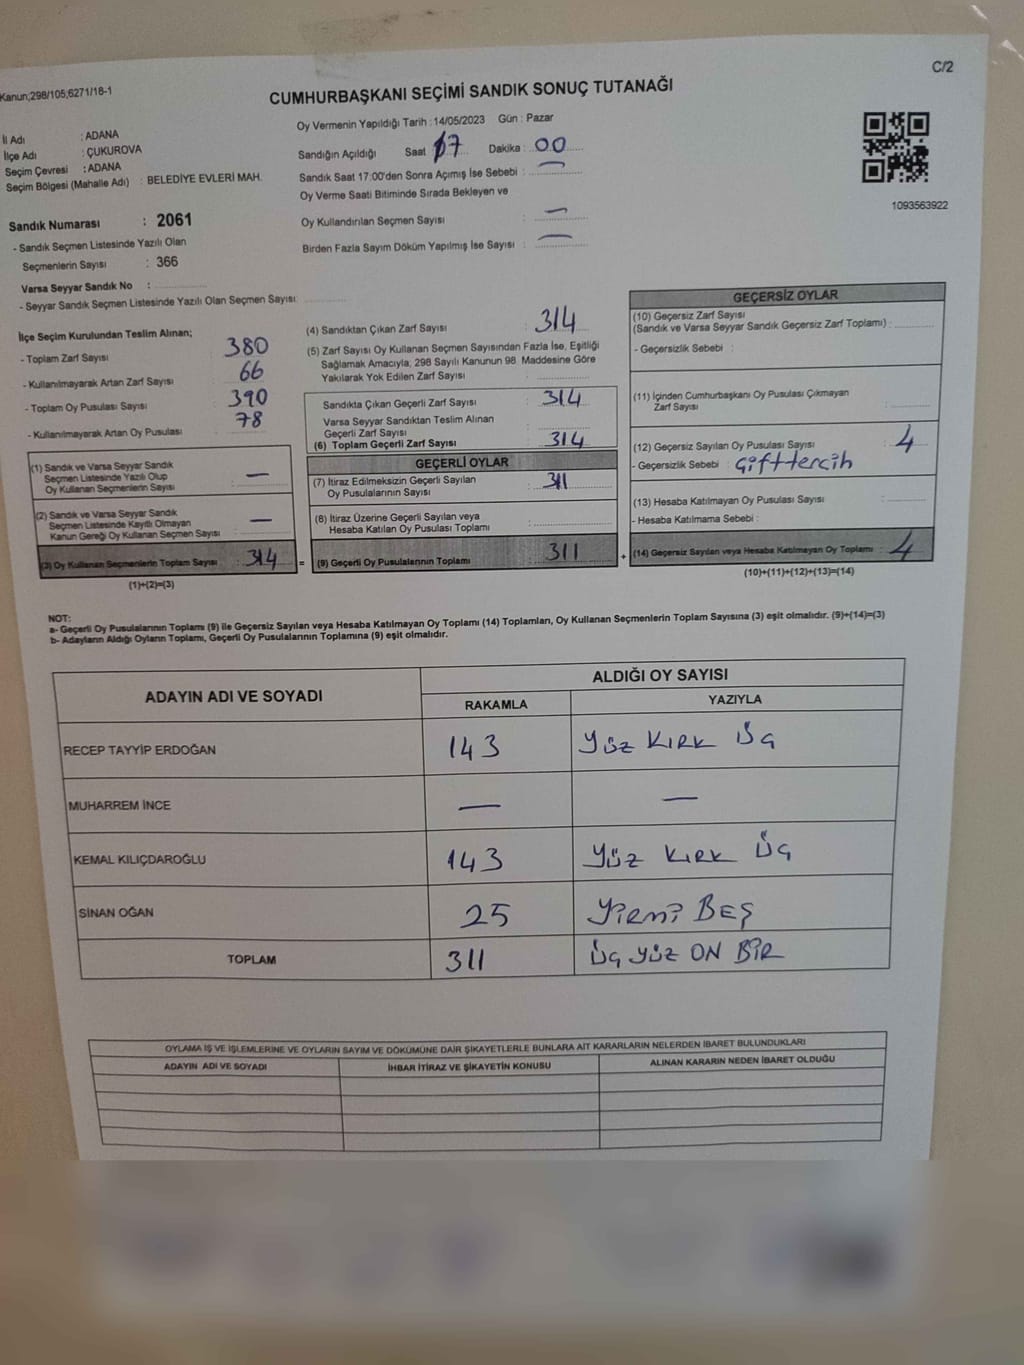 C/2
Kanun;298/105;6271/18-1
CUMHURBAŞKANI SEÇİMİ SANDIK SONUÇ TUTANAĞI
İl Adı : ADANA
İlçe Adı : ÇUKUROVA
Seçim Çevresi : ADANA
Seçim Bölgesi (Mahalle Adı) : BELEDİYE EVLERİ MAH.
Sandık Numarası : 2061
- Sandık Seçmen Listesinde Yazılı Olan
Seçmenlerin Sayısı : 366
Varsa Seyyar Sandık No :
- Seyyar Sandık Seçmen Listesinde Yazılı Olan Seçmen Sayısı:
Oy Vermenin Yapıldığı Tarih : 14/05/2023 Gün : Pazar
Sandığın Açıldığı Saat 17 Dakika : 00
Sandık Saat 17:00'den Sonra Açımış İse Sebebi : —
Oy Verme Saati Bitiminde Sırada Bekleyen ve
Oy Kullandırılan Seçmen Sayısı : —
Birden Fazla Sayım Döküm Yapılmış İse Sayısı : —
1093563922
İlçe Seçim Kurulundan Teslim Alınan;
- Toplam Zarf Sayısı : 380
- Kullanılmayarak Artan Zarf Sayısı : 66
- Toplam Oy Pusulası Sayısı : 390
- Kullanılmayarak Artan Oy Pusulası : 78
(1) Sandık ve Varsa Seyyar Sandık
Seçmen Listesinde Yazılı Olup
Oy Kullanan Seçmenlerin Sayısı : —
(2) Sandık ve Varsa Seyyar Sandık
Seçmen Listesinde Kayıtlı Olmayan
Kanun Gereği Oy Kullanan Seçmen Sayısı : —
(3) Oy Kullanan Seçmenlerin Toplam Sayısı : 314
(1)+(2)=(3)
(4) Sandıktan Çıkan Zarf Sayısı : 314
(5) Zarf Sayısı Oy Kullanan Seçmen Sayısından Fazla İse, Eşitliği
Sağlamak Amacıyla; 298 Sayılı Kanunun 98. Maddesine Göre
Yakılarak Yok Edilen Zarf Sayısı :
Sandıkta Çıkan Geçerli Zarf Sayısı : 314
Varsa Seyyar Sandıktan Teslim Alınan
Geçerli Zarf Sayısı :
(6) Toplam Geçerli Zarf Sayısı : 314
GEÇERLİ OYLAR
(7) İtiraz Edilmeksizin Geçerli Sayılan
Oy Pusulalarının Sayısı : 311
(8) İtiraz Üzerine Geçerli Sayılan veya
Hesaba Katılan Oy Pusulası Toplamı :
= (9) Geçerli Oy Pusulalarının Toplamı : 311
GEÇERSİZ OYLAR
(10) Geçersiz Zarf Sayısı
(Sandık ve Varsa Seyyar Sandık Geçersiz Zarf Toplamı) :
- Geçersizlik Sebebi :
(11) İçinden Cumhurbaşkanı Oy Pusulası Çıkmayan
Zarf Sayısı :
(12) Geçersiz Sayılan Oy Pusulası Sayısı : 4
- Geçersizlik Sebebi : Çift tercih
(13) Hesaba Katılmayan Oy Pusulası Sayısı :
- Hesaba Katılmama Sebebi :
+ (14) Geçersiz Sayılan veya Hesaba Katılmayan Oy Toplamı : 4
(10)+(11)+(12)+(13)=(14)
NOT:
a- Geçerli Oy Pusulalarının Toplamı (9) ile Geçersiz Sayılan veya Hesaba Katılmayan Oy Toplamı (14) Toplamları, Oy Kullanan Seçmenlerin Toplam Sayısına (3) eşit olmalıdır. (9)+(14)=(3)
b- Adayların Aldığı Oyların Toplamı, Geçerli Oy Pusulalarının Toplamına (9) eşit olmalıdır.
ADAYIN ADI VE SOYADI ALDIĞI OY SAYISI
RAKAMLA YAZIYLA
RECEP TAYYİP ERDOĞAN 143 Yüz KIRK Üç
MUHARREM İNCE — —
KEMAL KILIÇDAROĞLU 143 Yüz KIRK Üç
SİNAN OĞAN 25 YİRMİ BEŞ
TOPLAM 311 Üç yüz ON BİR
OYLAMA İŞ VE İŞLEMLERİNE VE OYLARIN SAYIM VE DÖKÜMÜNE DAİR ŞİKAYETLERLE BUNLARA AİT KARARLARIN NELERDEN İBARET BULUNDUKLARI
ADAYIN ADI VE SOYADI İHBAR İTİRAZ VE ŞİKAYETİN KONUSU ALINAN KARARIN NEDEN İBARET OLDUĞU